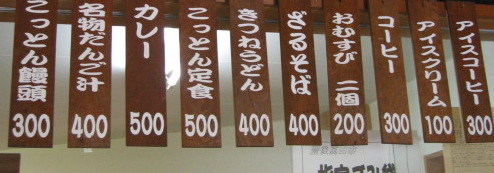 アイスコーヒー 300
アイスクリーム 100
コーヒー 300
おむすび 二個 200
ざるそば 400
きつねうどん 400
こっとん定食 500
カレー 500
名物だんご汁 400
こっとん饅頭 300